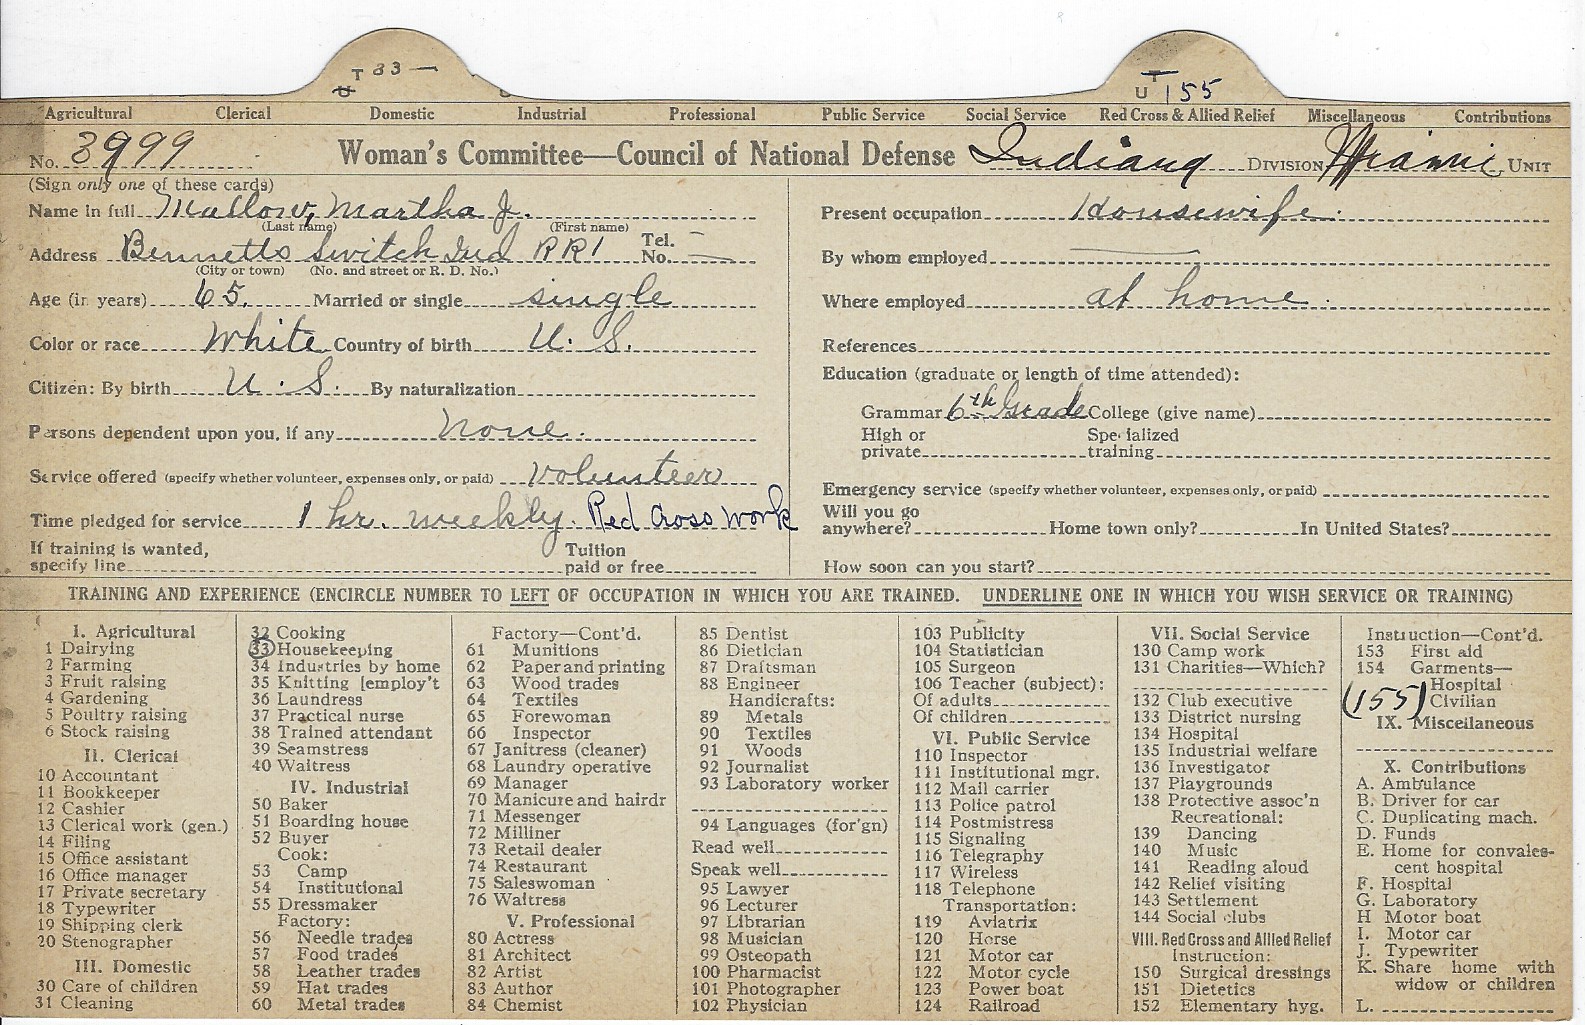 T 33 —
U
T
U 155
Agricultural Clerical Domestic Industrial Professional Public Service Social Service Red Cross & Allied Relief Miscellaneous Contributions
No. 3999 Woman's Committee—Council of National Defense Indiana DIVISION, Miami UNIT
(Sign only one of these cards)
Name in full Mallow, Martha J.
(Last name) (First name)
Address Bennetts Switch Ind RR1 Tel. No. —
(City or town) (No. and street or R. D. No.)
Age (in years) 65. Married or single single
Color or race White Country of birth U. S.
Citizen: By birth U. S. By naturalization
Persons dependent upon you, if any None.
Service offered (specify whether volunteer, expenses only, or paid) Volunteer
Time pledged for service 1 hr. weekly. Red Cross Work
If training is wanted, specify line Tuition paid or free
Present occupation Housewife.
By whom employed ——
Where employed at home.
References
Education (graduate or length of time attended):
Grammar 6th Grade College (give name)
High or private Specialized training
Emergency service (specify whether volunteer, expenses only, or paid)
Will you go anywhere? Home town only? In United States?
How soon can you start?
TRAINING AND EXPERIENCE (ENCIRCLE NUMBER TO LEFT OF OCCUPATION IN WHICH YOU ARE TRAINED. UNDERLINE ONE IN WHICH YOU WISH SERVICE OR TRAINING)
I. Agricultural
1 Dairying
2 Farming
3 Fruit raising
4 Gardening
5 Poultry raising
6 Stock raising
II. Clerical
10 Accountant
11 Bookkeeper
12 Cashier
13 Clerical work (gen.)
14 Filing
15 Office assistant
16 Office manager
17 Private secretary
18 Typewriter
19 Shipping clerk
20 Stenographer
III. Domestic
30 Care of children
31 Cleaning
32 Cooking
33 Housekeeping
34 Industries by home
35 Knitting [employ't
36 Laundress
37 Practical nurse
38 Trained attendant
39 Seamstress
40 Waitress
IV. Industrial
50 Baker
51 Boarding house
52 Buyer
Cook:
53 Camp
54 Institutional
55 Dressmaker
Factory:
56 Needle trades
57 Food trades
58 Leather trades
59 Hat trades
60 Metal trades
Factory—Cont'd.
61 Munitions
62 Paper and printing
63 Wood trades
64 Textiles
65 Forewoman
66 Inspector
67 Janitress (cleaner)
68 Laundry operative
69 Manager
70 Manicure and hairdr
71 Messenger
72 Milliner
73 Retail dealer
74 Restaurant
75 Saleswoman
76 Waitress
V. Professional
80 Actress
81 Architect
82 Artist
83 Author
84 Chemist
85 Dentist
86 Dietician
87 Draftsman
88 Engineer
Handicrafts:
89 Metals
90 Textiles
91 Woods
92 Journalist
93 Laboratory worker
94 Languages (for'gn)
Read well
Speak well
95 Lawyer
96 Lecturer
97 Librarian
98 Musician
99 Osteopath
100 Pharmacist
101 Photographer
102 Physician
103 Publicity
104 Statistician
105 Surgeon
106 Teacher (subject):
Of adults
Of children
VI. Public Service
110 Inspector
111 Institutional mgr.
112 Mail carrier
113 Police patrol
114 Postmistress
115 Signaling
116 Telegraphy
117 Wireless
118 Telephone
Transportation:
119 Aviatrix
120 Horse
121 Motor car
122 Motor cycle
123 Power boat
124 Railroad
VII. Social Service
130 Camp work
131 Charities—Which?
132 Club executive
133 District nursing
134 Hospital
135 Industrial welfare
136 Investigator
137 Playgrounds
138 Protective assoc'n
Recreational:
139 Dancing
140 Music
141 Reading aloud
142 Relief visiting
143 Settlement
144 Social clubs
VIII. Red Cross and Allied Relief
Instruction:
150 Surgical dressings
151 Dietetics
152 Elementary hyg.
Instruction—Cont'd.
153 First aid
154 Garments—
Hospital
(155) Civilian
IX. Miscellaneous
X. Contributions
A. Ambulance
B. Driver for car
C. Duplicating mach.
D. Funds
E. Home for convales-
cent hospital
F. Hospital
G. Laboratory
H Motor boat
I. Motor car
J. Typewriter
K. Share home with
widow or children
L.